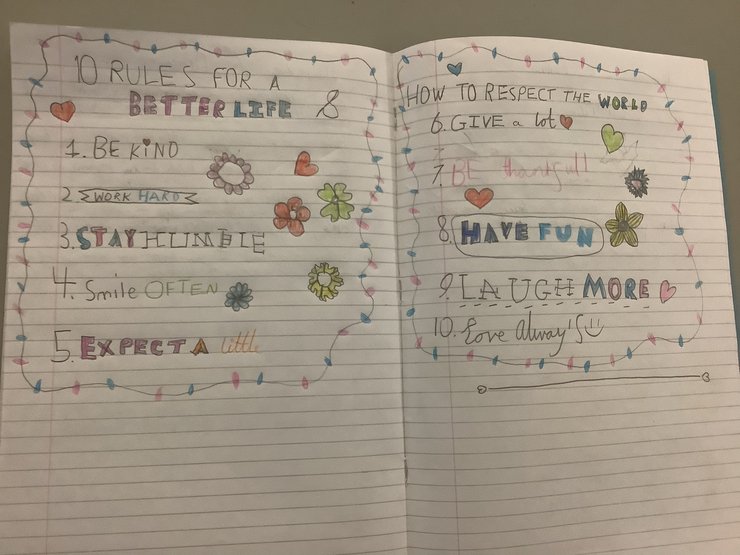 10 RULES FOR A
BETTER LIFE &
1. BE KIND
2 WORK HARD
3. STAY HUMBLE
4. Smile OFTEN
5. EXPECT A little
HOW TO RESPECT THE WORLD
6. GIVE a lot
7. BE thankfull
8. HAVE FUN
9. LAUGH MORE
10. Love Alway's